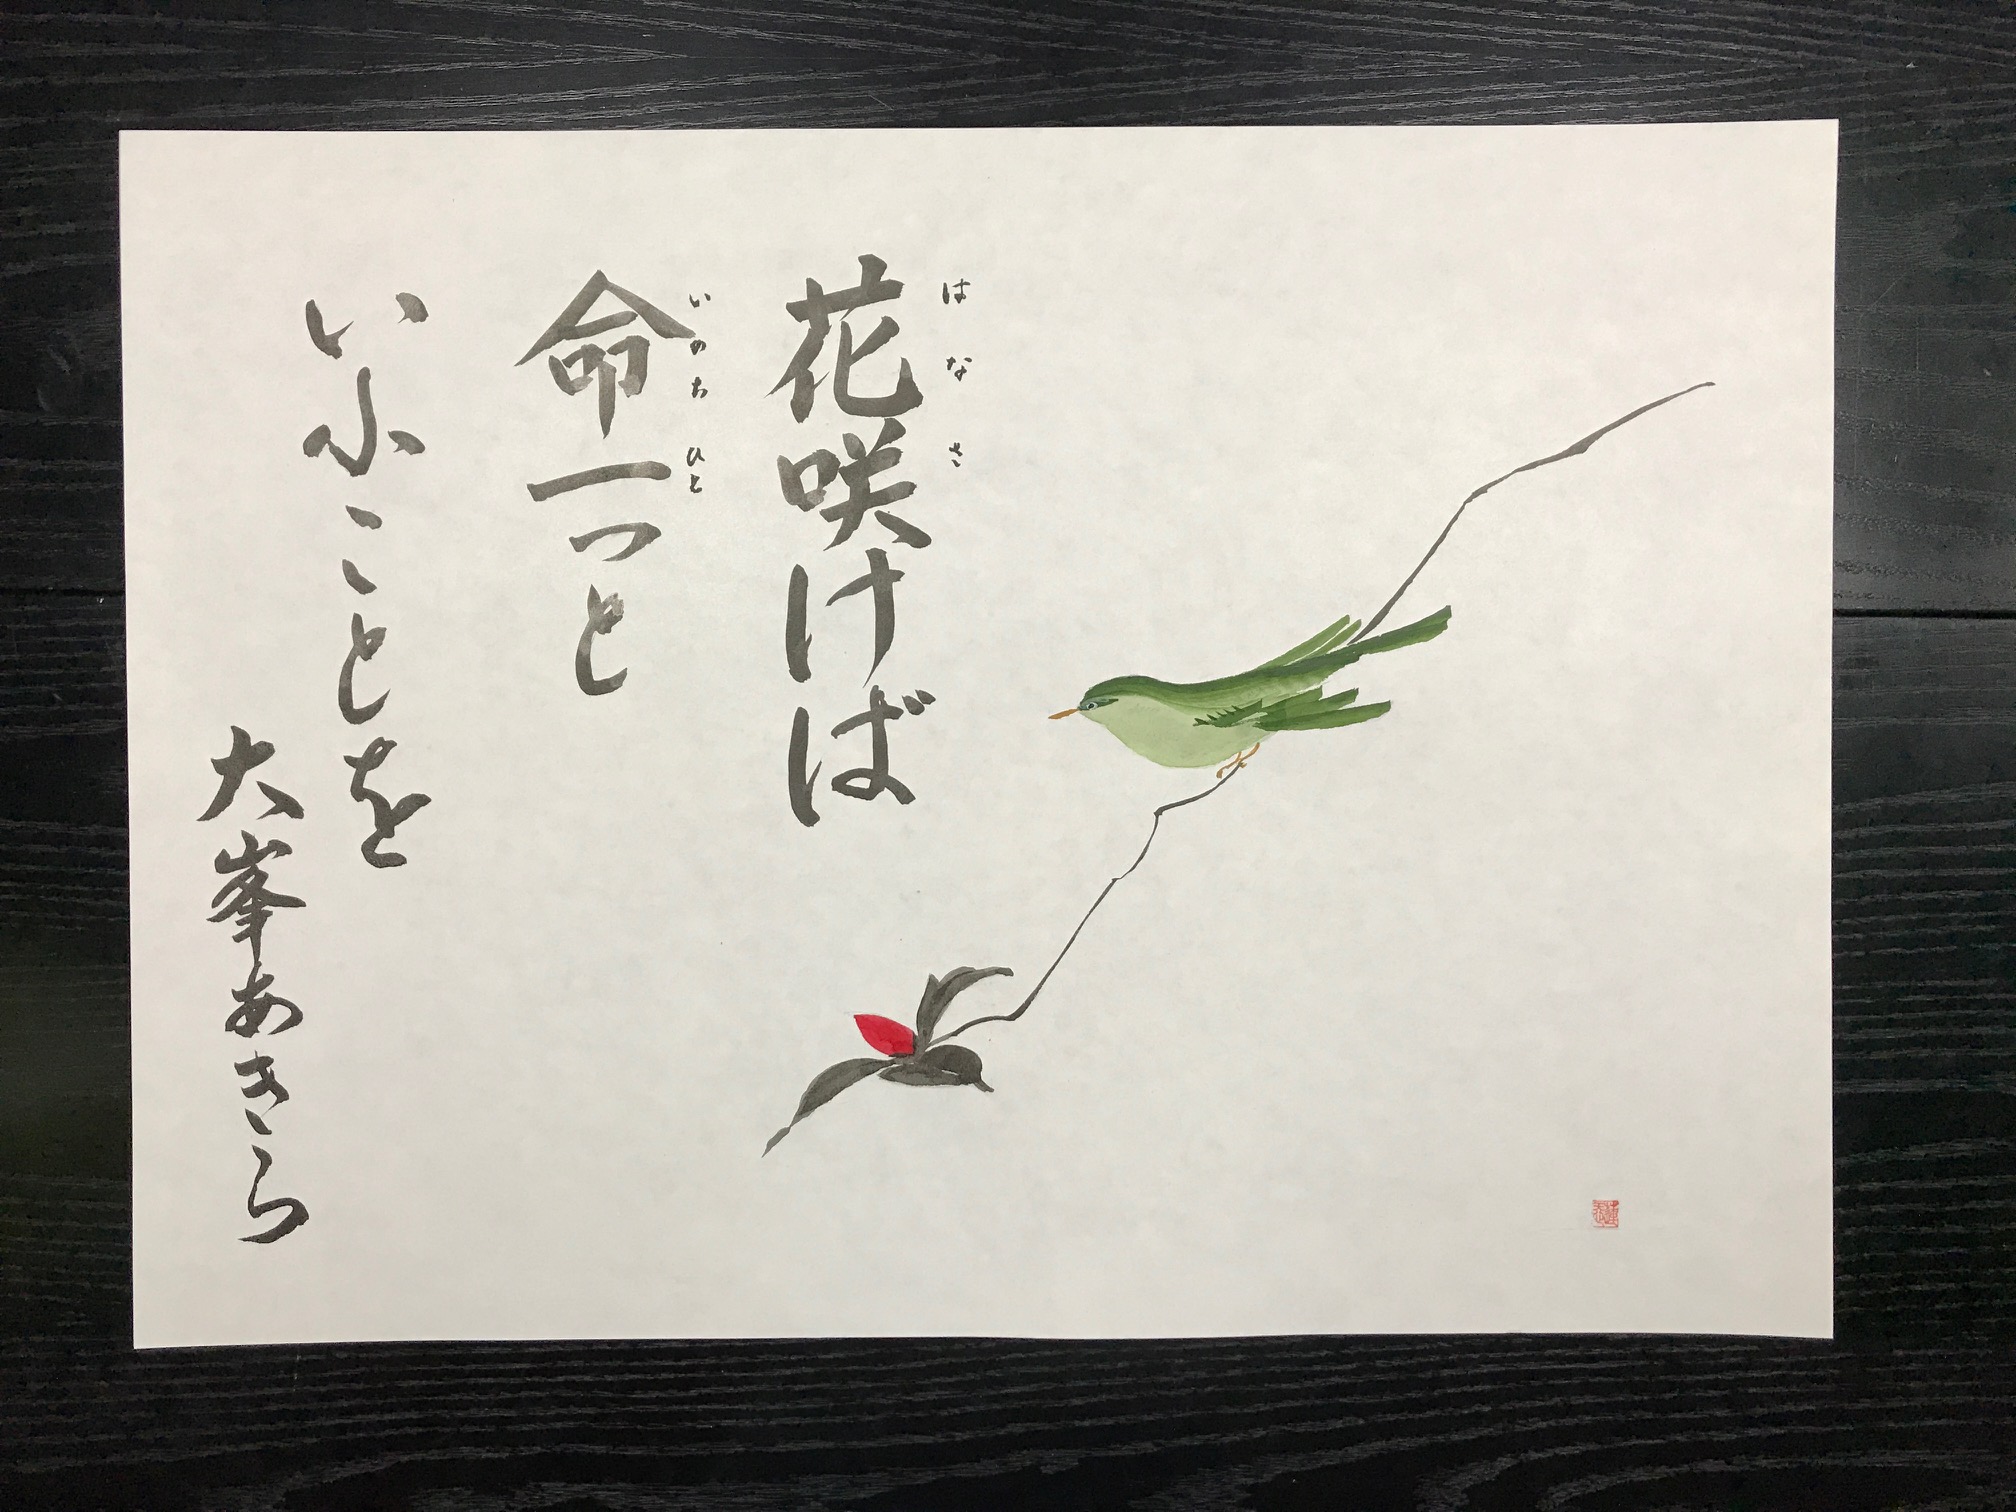 はなさ
花咲けば
いのちひと
命一つと
いふことを
大峯あきら